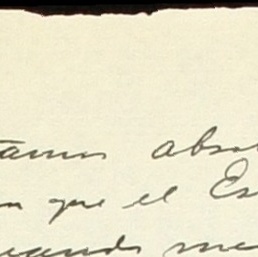 tamos abso
n que el Es
eando me